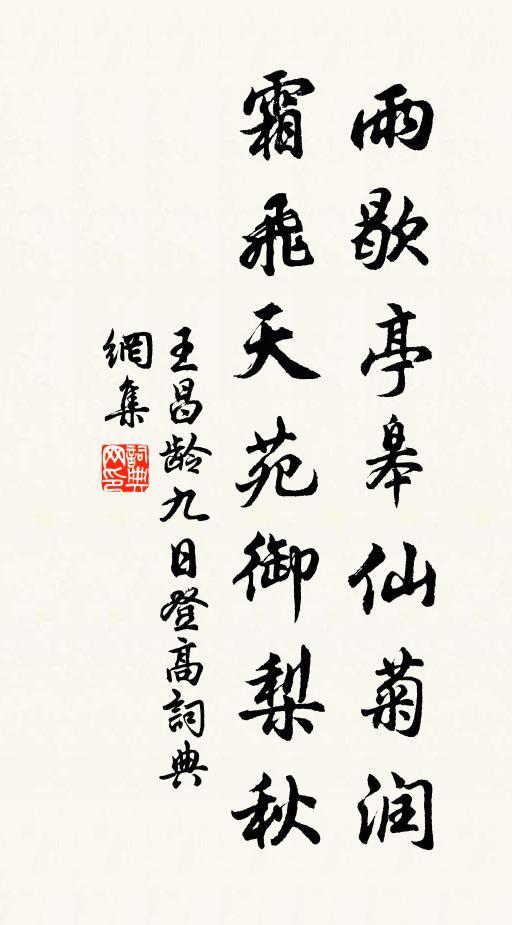 雨歇亭皋仙菊润
霜飛天苑御梨秋
王昌龄九日登高詞典
網集
詞典
网印